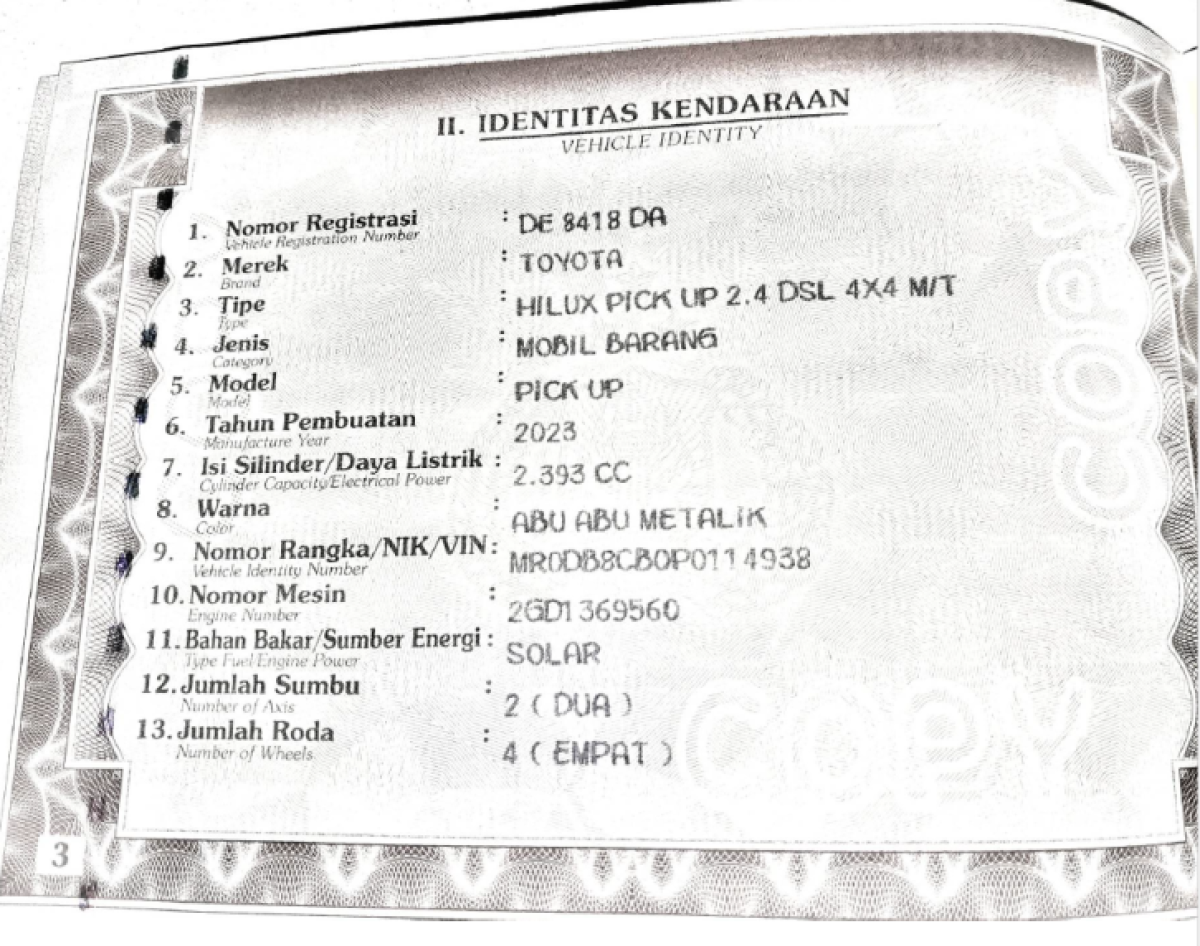 II. IDENTITAS KENDARAAN
VEHICLE IDENTITY
1. Nomor Registrasi : DE 8418 DA
Vehicle Registration Number
2. Merek : TOYOTA
Brand
3. Tipe : HILUX PICK UP 2.4 DSL 4X4 M/T
Type
4. Jenis : MOBIL BARANG
Category
5. Model : PICK UP
Model
6. Tahun Pembuatan : 2023
Manufacture Year
7. Isi Silinder/Daya Listrik : 2.393 CC
Cylinder Capacity/Electrical Power
8. Warna : ABU ABU METALIK
Color
9. Nomor Rangka/NIK/VIN : MR0DB8CB0P0114938
Vehicle Identity Number
10. Nomor Mesin : 2GD1369560
Engine Number
11. Bahan Bakar/Sumber Energi : SOLAR
Type Fuel/Engine Power
12. Jumlah Sumbu : 2 ( DUA )
Number of Axis
13. Jumlah Roda : 4 ( EMPAT )
Number of Wheels
COPY
COPY
3